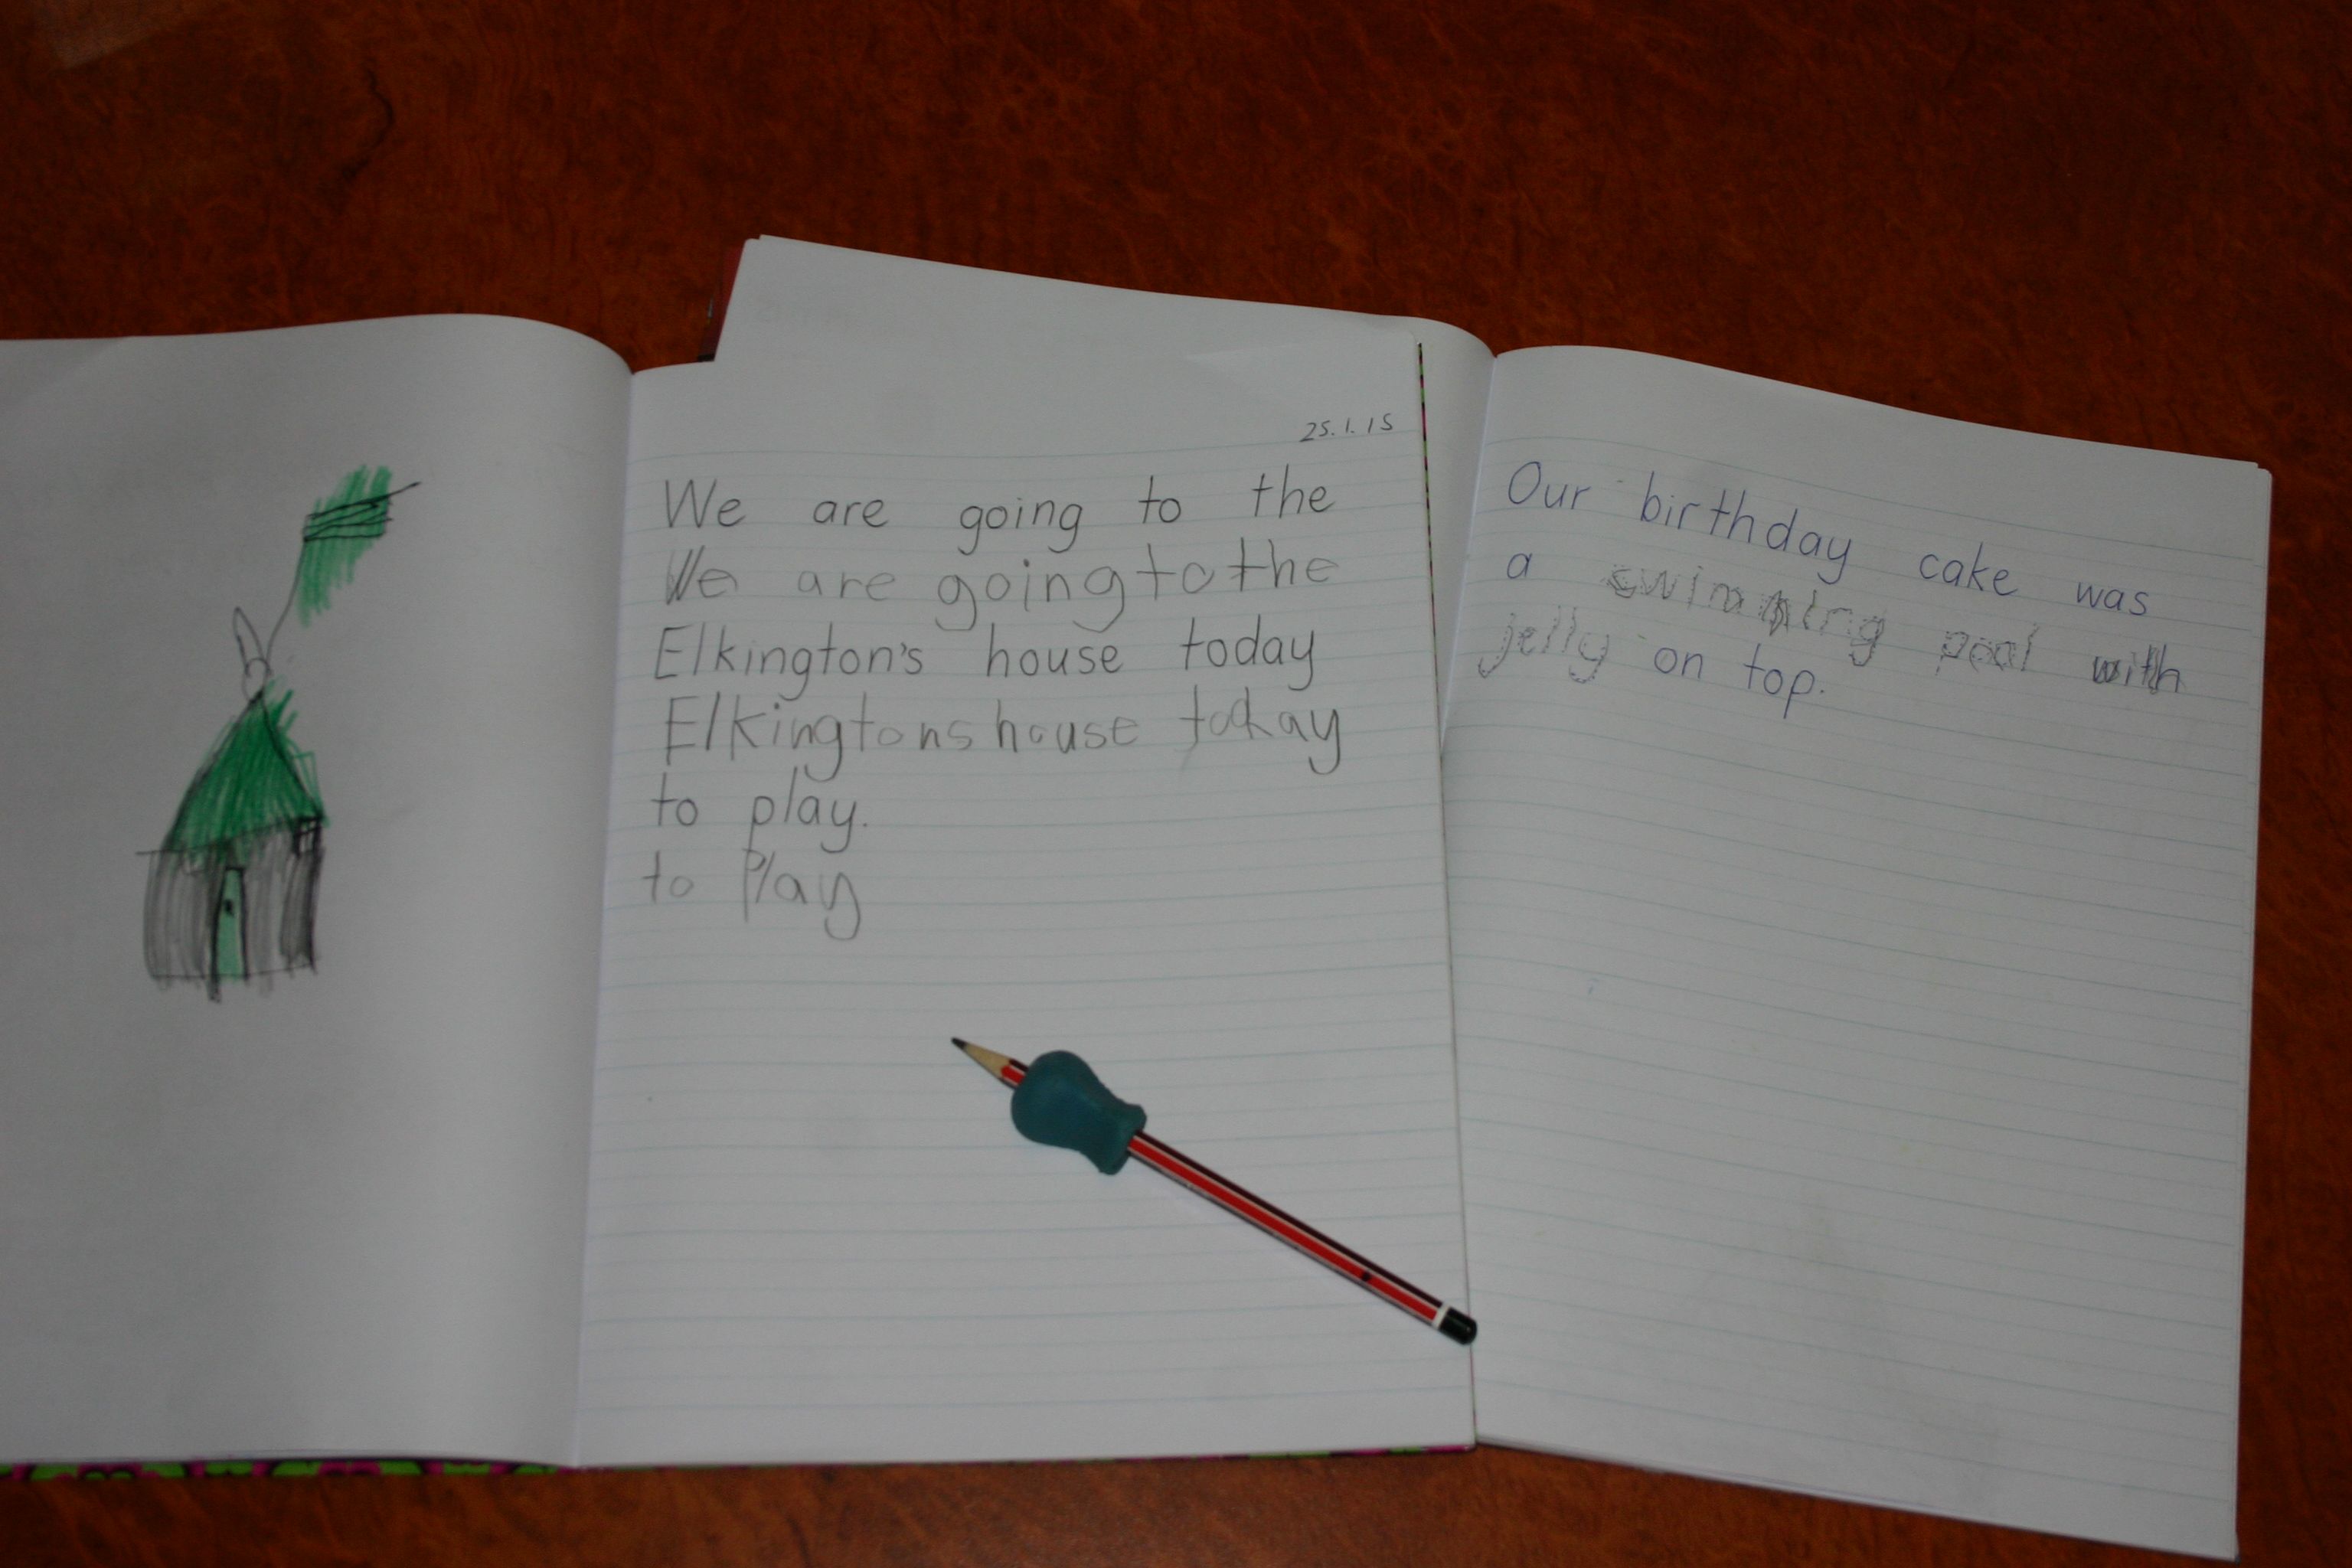 25.1.15
We are going to the
We are going to the
Elkington's house today
Elkingtons house today
to play.
to Play
Our birthday cake was
a swimming pool with
jelly on top.